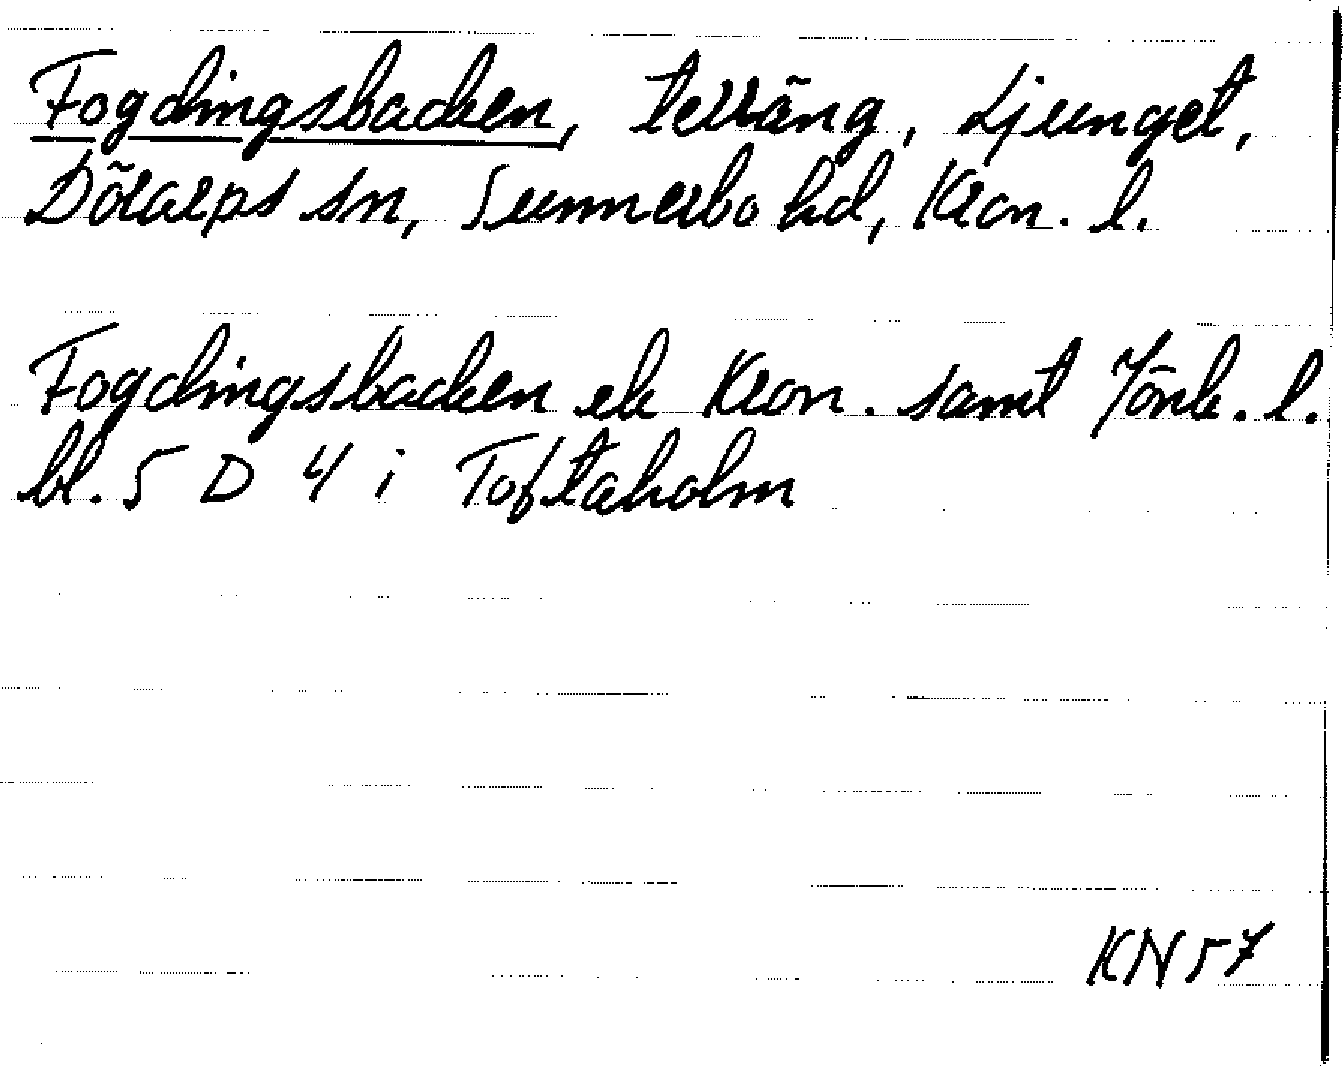 Fogdingsbacken, terräng, Ljunget,
Dörarps sn, Sunnerbo hd, Kron. l.
Fogdingsbacken ek Kron. samt Jönk. l.
bl. 5 D 4 i Toftaholm
KN57